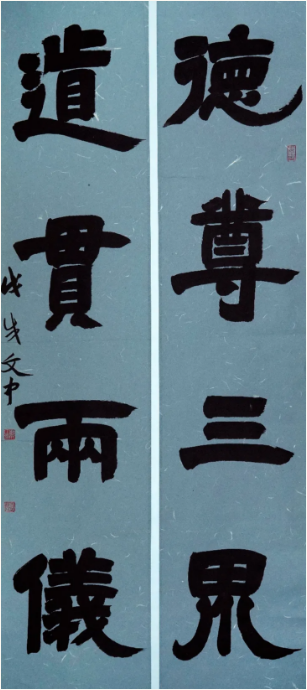 德尊三界
道貫兩儀
戊戌文中